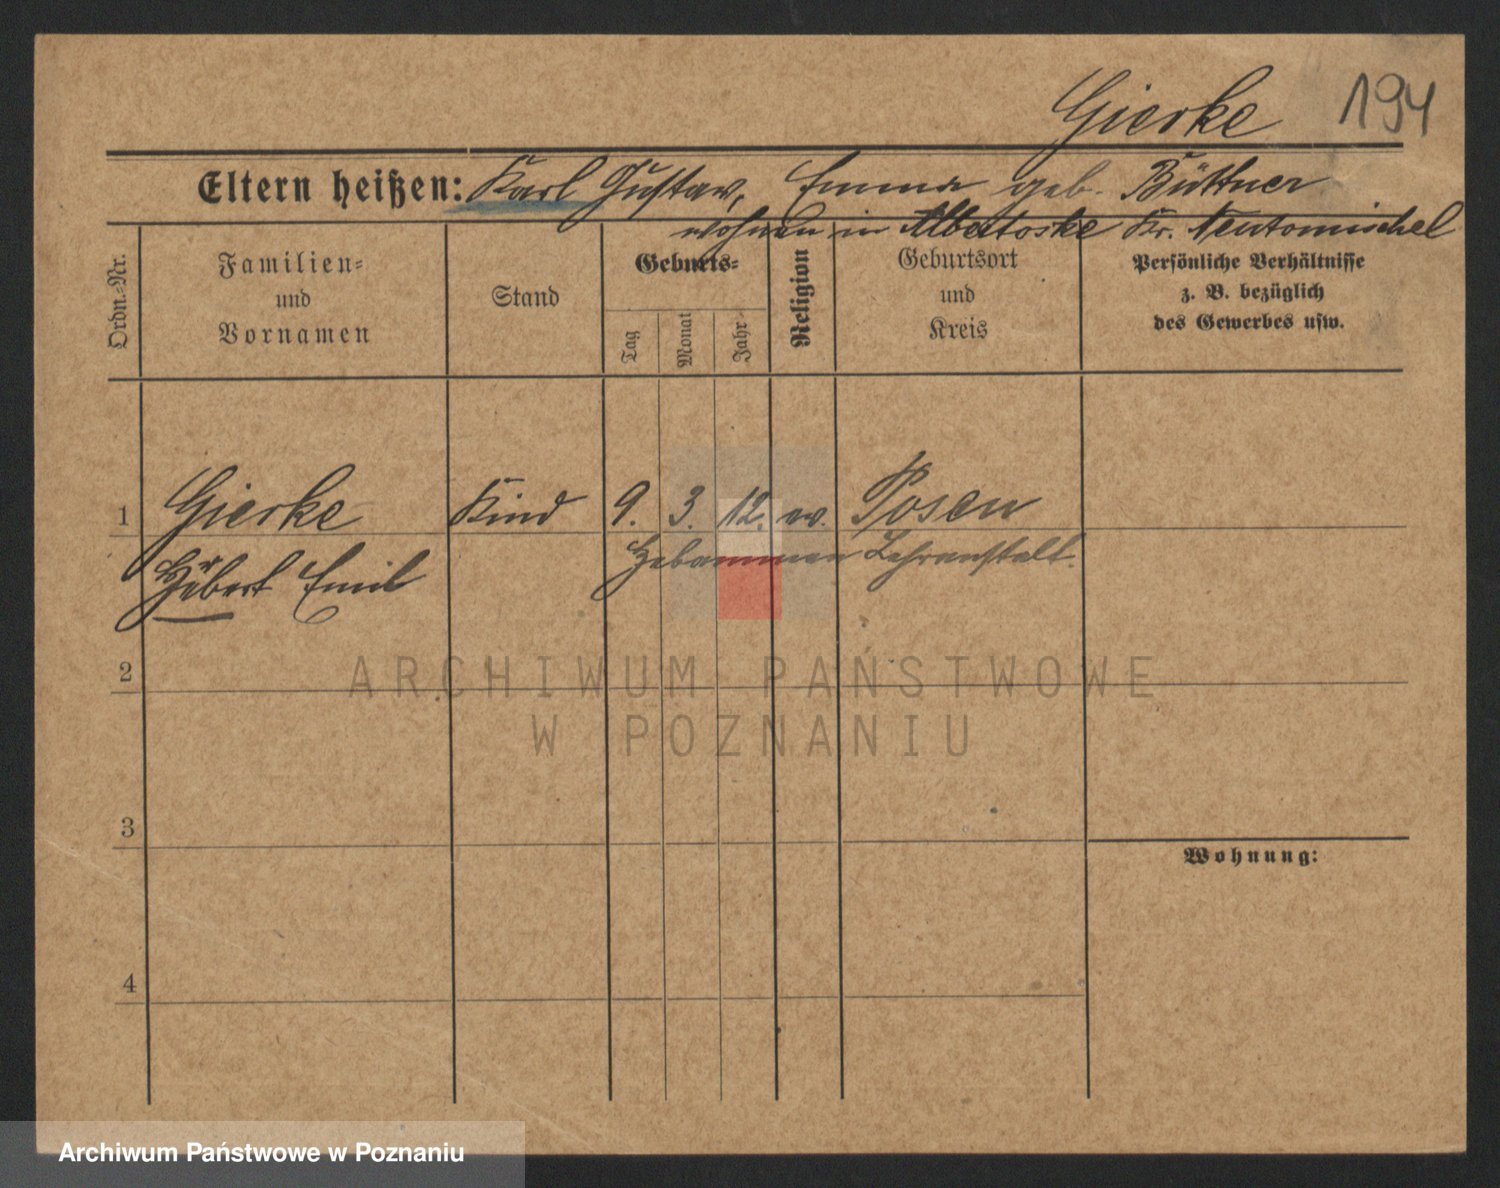 Gierke 194
Eltern heißen: Karl Gustav, Emma geb. Büttner
wohnen in Albertoske Kr. Neutomischel
Ordn.-Nr.
Familien-
und
Vornamen
Stand
Geburts-
Tag
Monat
Jahr
Religion
Geburtsort
und
Kreis
Persönliche Verhältnisse
z. B. bezüglich
des Gewerbes usw.
1 Gierke Kind 9. 3. 12. ev. Posen
Hebammen Lehranstalt.
Emil
2
ARCHIWUM PAŃSTWOWE
W POZNANIU
3
Wohnung:
4
Archiwum Państwowe w Poznaniu